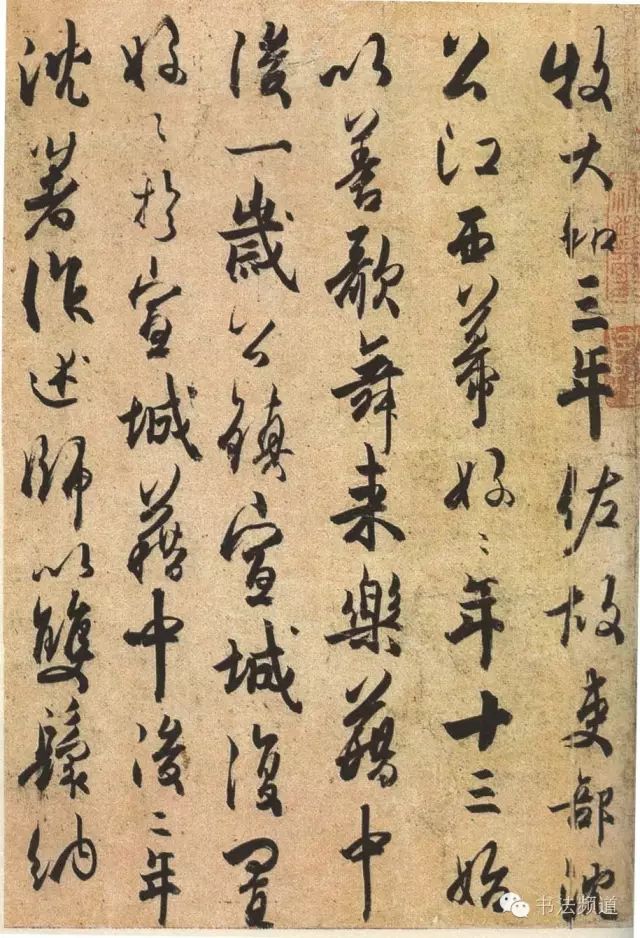 牧大和三年佐故吏部沈
公江西幕好〻年十三始
以善歌舞来樂籍中
後一歲公鎮宣城復置
好〻於宣城籍中後二年
沈著作述師以雙鬟納
书法频道